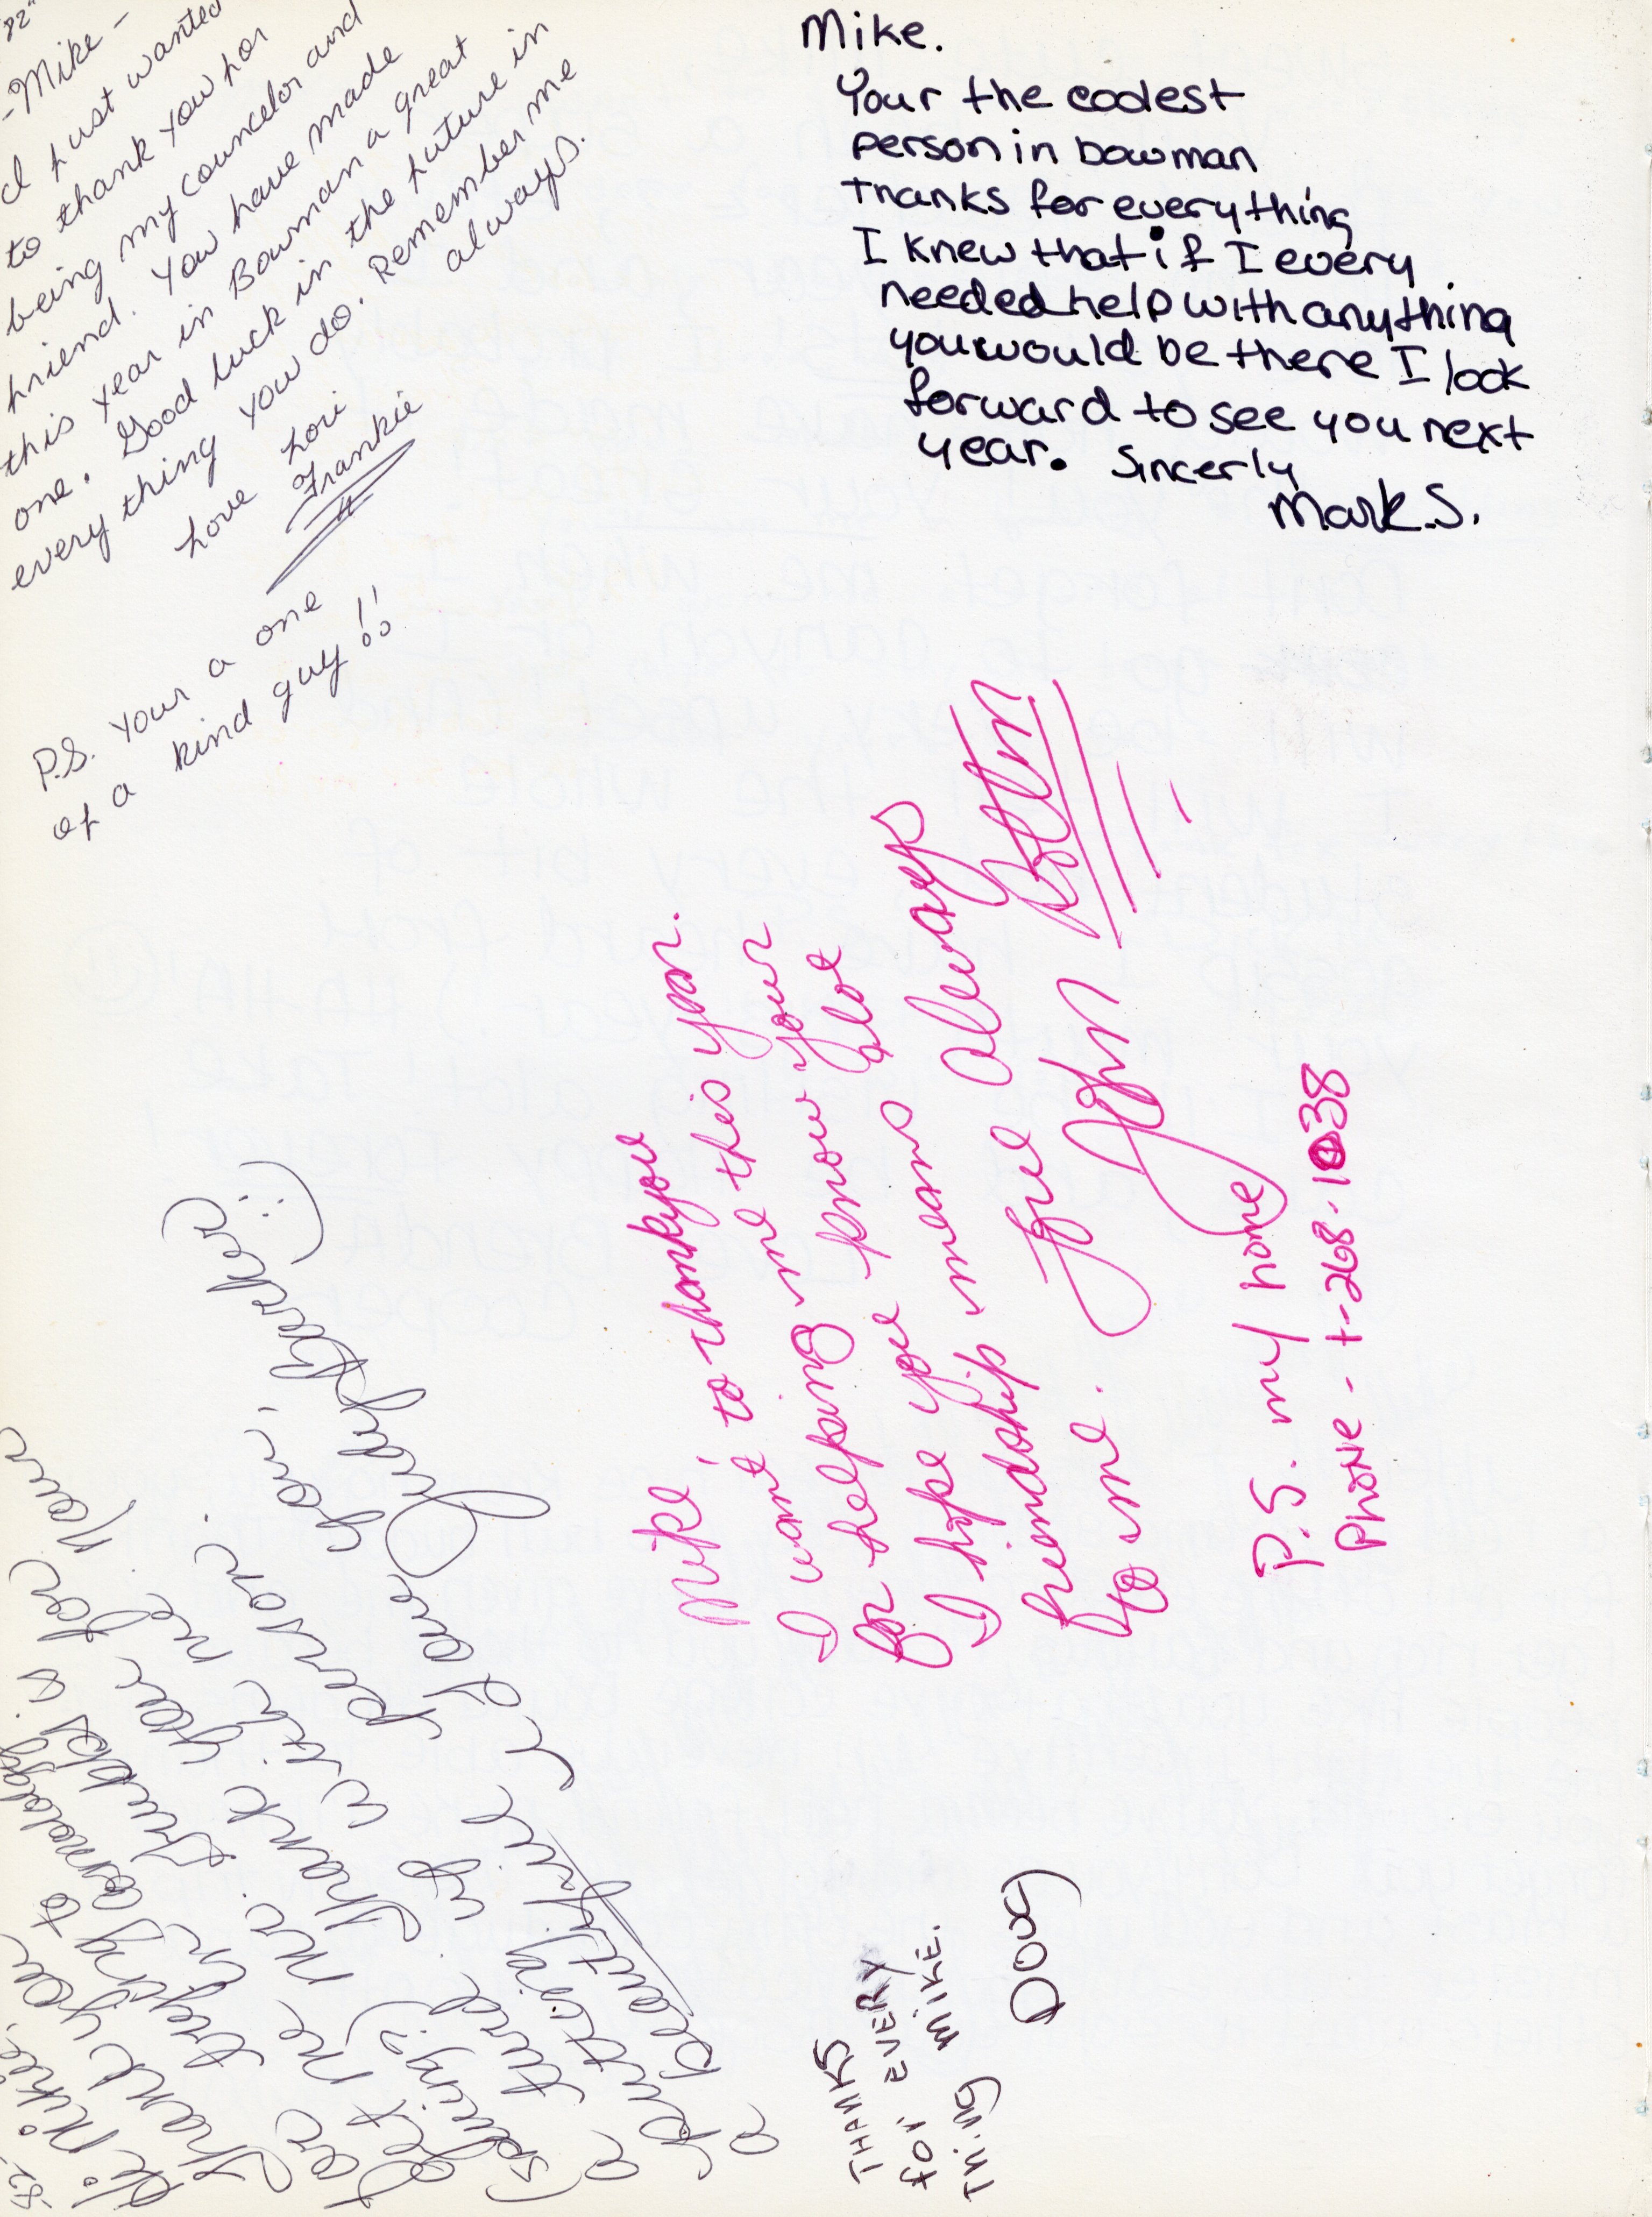 '82'
-Mike-
I just wanted
to thank you for
being my councelor and
friend. You have made
this year in Bowman a great
one. Good luck in the future in
every thing you do. Remember me
always.
Love Lori
Frankie
P.S. Your a one
of a kind guy!!
Mike.
Your the coolest
person in bowman
thanks for everything
I knew that if I every
needed help with anything
you would be there I look
forward to see you next
year. Sincerly
Mark.S.
Mike,
I want to thankyou
for helping me this year.
I hope you know your
friendship means alot
to me.
true always
John
P.S. my home
Phone - 1-268-1038
'82'
Hi Mike.
Thank you
for trying to
get me in
(spelling?) hr.
a turd. Thank you for
putting up with me.
a beautiful person.
Love ya,
Judy Barker :)
THANKS
FOR EVERY
THiNG MIKE.
DOUG